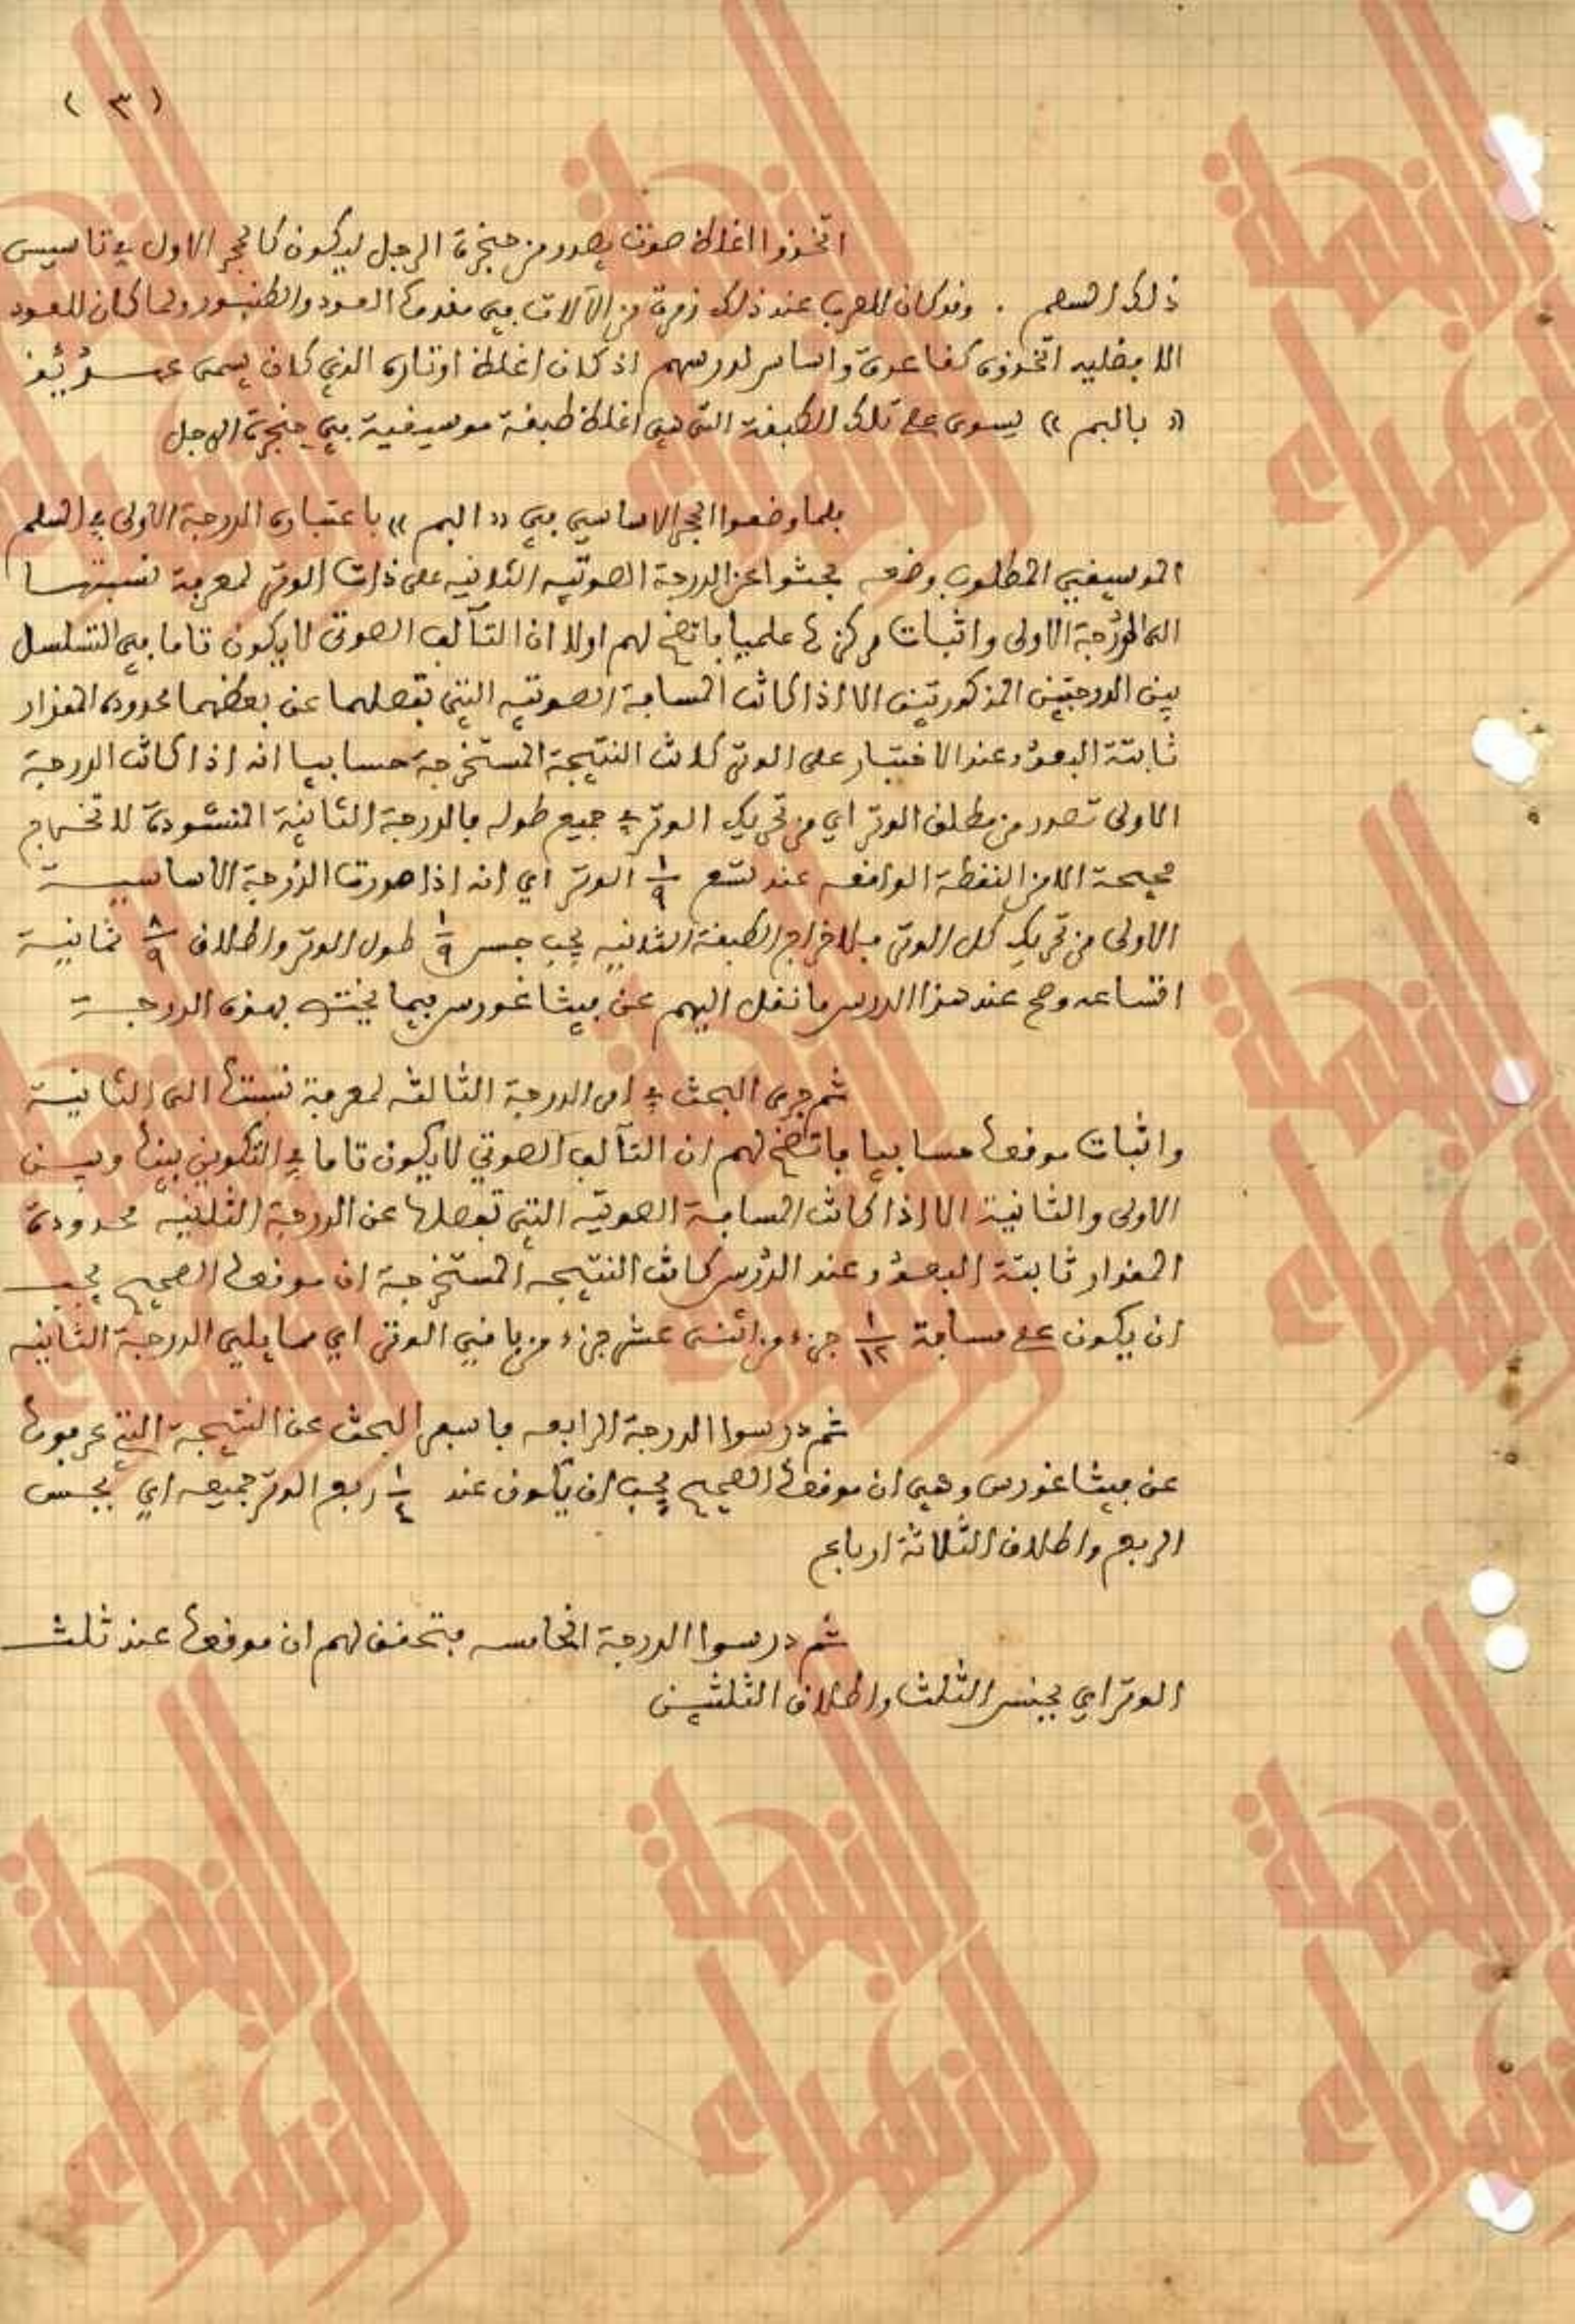 ( ٣ )
اتخذوا اغلظ صوت يصدر من حنجرة الرجل ليكون كالحجر الاول في تاسيس
ذلك السلم . وقد كان للعرب عند ذلك زمرة من الآلات في مقدمتها العود والطنبور ولما كان للعود
الافضليه اتخذوه كقاعدة واساس لدرسهم اذ كان اغلظ اوتاره الذي كان يسمى عندئذ
« بالبم » يسوى على تلك الطبقة التي هي اغلظ طبقة موسيقية في حنجرة الرجل
فلما وضعوا الحجر الاساسي في « البم » باعتباره الدرجة الاولى في السلم
الموسيقي المطلوب وضعه بحثوا عن الدرجة الصوتيه الثانيه على ذات الوتر لمعرفة نسبتها
الى الدرجة الاولى واثبات مركزها علميا فاتضح لهم اولا ان التآلف الصوتي لا يكون تاما في التسلسل
بين الدرجتين المذكورتين الا اذا كانت المسافة الصوتيه التي تفصلهما عن بعضهما محدودة المقدار
ثابتة البعد وعند الاختبار على الوتر كانت النتيجة المستخرجة حسابيا انه اذا كانت الدرجة
الاولى تصدر من مطلق الوتر اي من تحريك الوتر في جميع طوله فالدرجة الثانية المنشودة لا تخرج
صحيحة الا من النقطة الواقعه عند تسع ١/٩ الوتر اي انه اذا صدرت الدرجة الاساسية
الاولى من تحريك كل الوتر فلاخراج الطبقة الثانيه يجب حبس ١/٩ طول الوتر واطلاق ٨/٩ ثمانية
اتساعه وصح عند هذا الدرس ما نقل اليهم عن فيثاغورس فيما يختص بهذه الدرجة
ثم جرى البحث في امر الدرجة الثالثه لمعرفة نسبتها الى الثانية
واثبات موقعها حسابيا فاتضح لهم ان التآلف الصوتي لا يكون تاما في التكوين بينها وبين
الاولى والثانية الا اذا كانت المسافة الصوتيه التي تفصلها عن الدرجة الثانيه محدودة
المقدار ثابتة البعد وعند الدرس كانت النتيجه المستخرجة ان موقعها الصحيح يجب
ان يكون على مسافة ١/١٢ جزء من اثنى عشر جزء من باقي الوتر اي مما يلي الدرجة الثانيه
ثم درسوا الدرجة الرابعه فاسفر البحث عن النتيجة التي عرفوها
عن فيثاغورس وهي ان موقعها الصحيح يجب ان يكون عند ١/٤ ربع الوتر جميعه اي بحبس
الربع واطلاق الثلاثة ارباع
ثم درسوا الدرجة الخامسه فتحقق لهم ان موقعها عند ثلث
الوتر اي بحبس الثلث واطلاق الثلثين